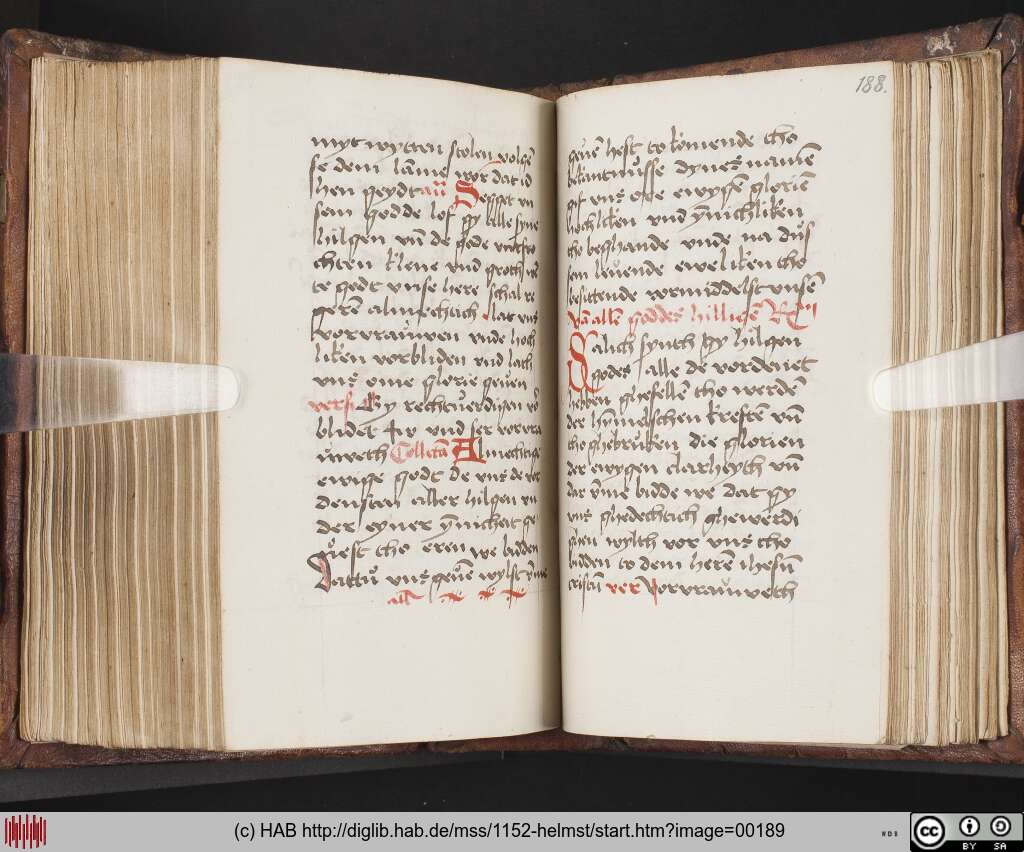 myt wytten stolen volgē
se deme lāme wor dat id
hen geydt añ Segget vn
sem godde lof gy alle syne
hilgen vn̄ de gode vruch
chten klene vnd groth we
te godt vnse here schal re
geren almechtich lat vns
vorvrauwen vnde hoch
liken vorbliden vnd lath
vns eme glorie geuen
versi Gy rechtuerdigen vor
blidet Iw vnd ser vorvra
uweth Collecta Almechtige
ewige godt de vns de vor
densten aller hilgen vn
der eyner ynicheit ge
giest tho eren we bidden
dattu vns geuē wylst
geuē hest to komende tho
bekantnusse dynes namē
gif vns ofte ewygē gloriē
hochliken vnd ynichliken
tho beghande vnde na dus
sem leuende eweliken tho
besittende vormiddelst vnsen
vā allē goddes hilligē
Salich synth gy hilgen
godes alle de vordenet
hebben ghesellen tho werdē
der hymmelschen kreftē vn̄
tho ghebruken die glorien
der ewygen clarheyth vn̄
dar vmme bidde we dat gy
vns ghedechtich ghewerdi
ghen wylth vor vns tho
bidden to dem herē ihesū
cristū ver Vorvrauweth
188.
(c) HAB http://diglib.hab.de/mss/1152-helmst/start.htm?image=00189
WDB
cc BY SA